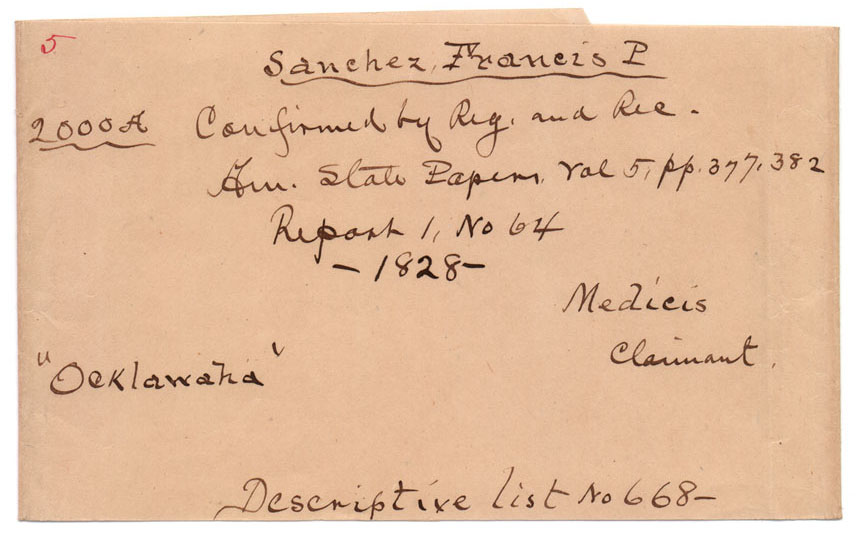 5
Sanchez, Francis P
2000A Confirmed by Reg. and Rec.
Am. State Papers, Vol 5, pp. 377, 382
Report 1, No 64
- 1828 -
Medicis
Claimant.
"Ocklawaha"
Descriptive list No 668-